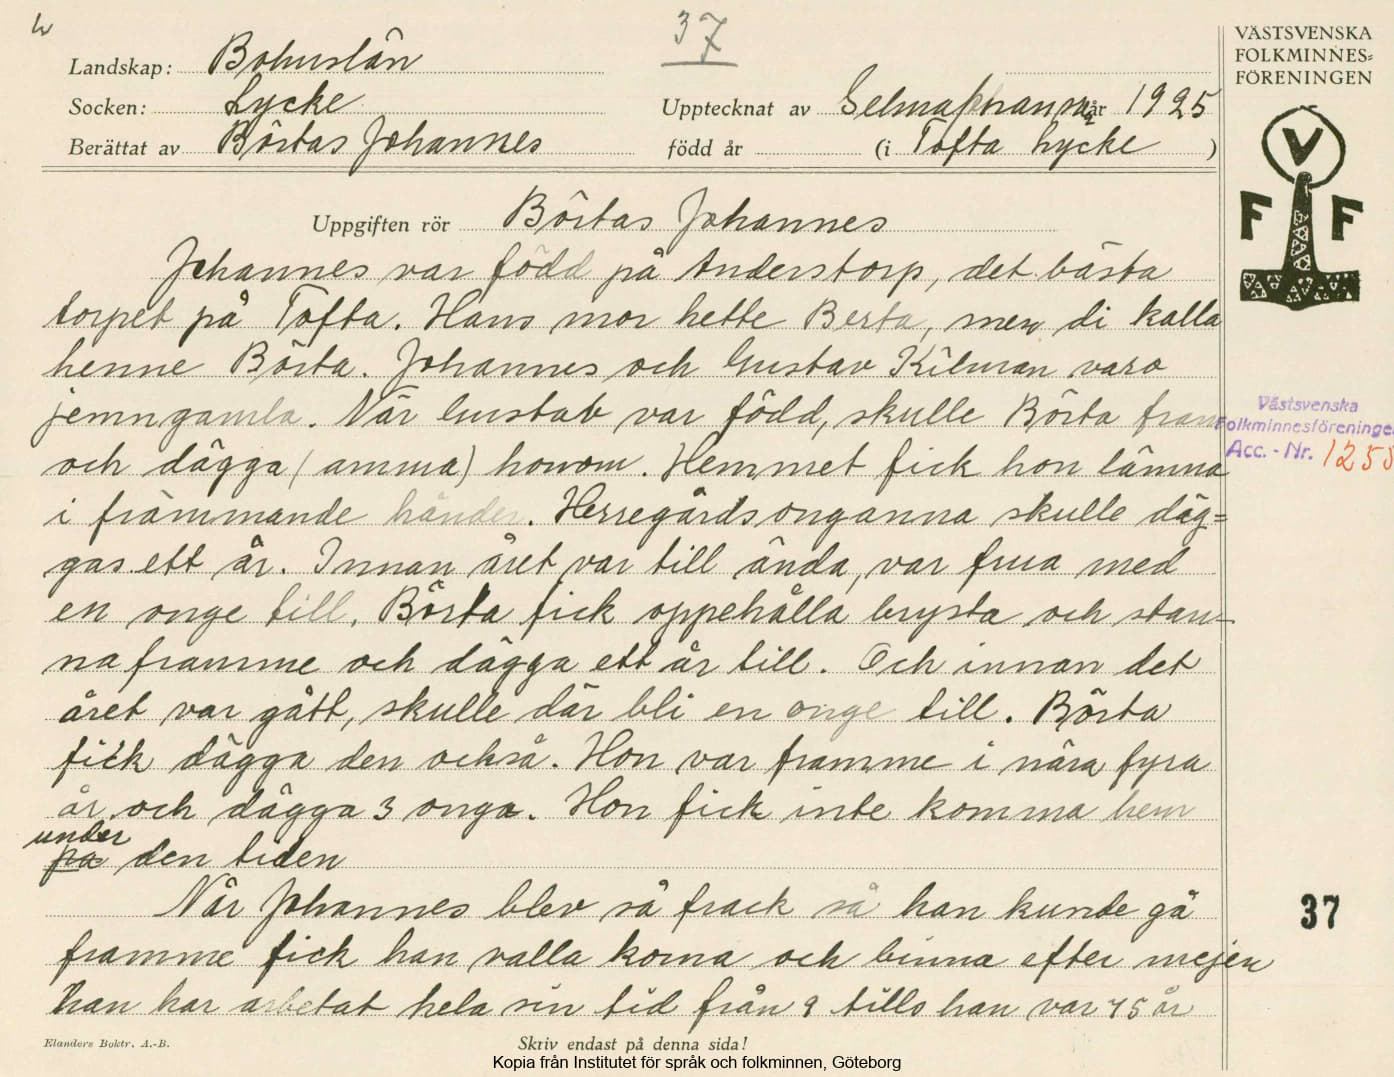 37
Landskap: Bohuslän
Socken: Lycke
Berättat av Börtas Johannes
Upptecknat av Selma år 1925
född år (i Tofta Lycke )
VÄSTSVENSKA
FOLKMINNES=
FÖRENINGEN
V
F F
Uppgiften rör Börtas Johannes
Johannes var född på Anderstorp, det bästa
torpet på Tofta. Hans mor hette Berta, men di kalla
henne Börta. Johannes och Gustav Kilman varo
jemngamla. När Gustav var född, skulle Börta fram
och dägga (amma) honom. Hemmet fick hon lämna
i främmande händer. Herregårdsonganna skulle däg=
gas ett år. Innan året var till ända, var frua med
en onge till. Börta fick oppehålla brysta och stan-
na framme och dägga ett år till. Och innan det
året var gått, skulle där bli en onge till. Börta
fick dägga den också. Hon var framme i nära fyra
år, och dägga 3 onga. Hon fick inte komma hem
under
på den tiden
När Johannes blev så frack så han kunde gå
framme fick han valla korna och binna efter mejen
han har arbetat hela sin tid från 9 tills han var 75 år
Västsvenska
Folkminnesföreningen
Acc. - Nr. 1255
37
Elanders Boktr. A.-B.
Skriv endast på denna sida!
Kopia från Institutet för språk och folkminnen, Göteborg